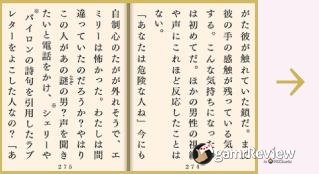 がた彼が触れていた鎖だ。ま
彼の手の感触が残っている気
する。こんな気持ちになった
は初めてだ。ほかの男性の視
や声にこれほど反応したことは
ない。
「あなたは危険な人ね」今にも
274
自制心のたがが外れそうで、エ
ミリーは怖かった。わたしは間
違っていたのだろうか？やはり
この人があの謎の男？声を聞き
たいと電話をかけ、シェリーや
バイロンの詩句を引用したラブ
レターをよこした人なの？「あ
275
gameReview